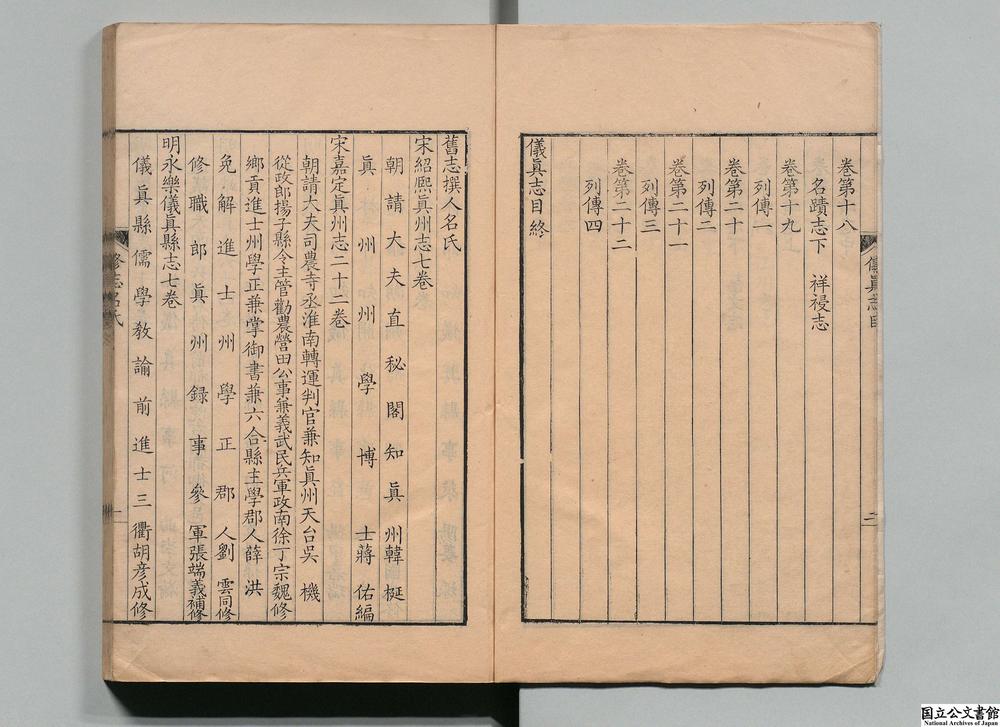 卷第十八
名蹟志下　祥祲志
卷第十九
列傳一
卷第二十
列傳二
卷第二十一
列傳三
卷第二十二
列傳四
儀眞志目終
儀眞志目
二
舊志撰人名氏
宋紹熙眞州志七卷
朝請大夫直秘閣知眞州韓梃
眞州州學博士蔣佑編
宋嘉定眞州志二十二卷
朝請大夫司農寺丞淮南轉運判官兼知眞州天台吳機
從政郎揚子縣令主管勸農營田公事兼義武民兵軍政南徐丁宗魏修
鄉貢進士州學正兼掌御書兼六合縣主學郡人薛洪
免解進士州學正郡人劉雲同修
修職郎眞州錄事參軍張端義補修
明永樂儀眞縣志七卷
儀眞縣儒學敎諭前進士三衢胡彦成修
修志名氏
一
国立公文書館
National Archives of Japan